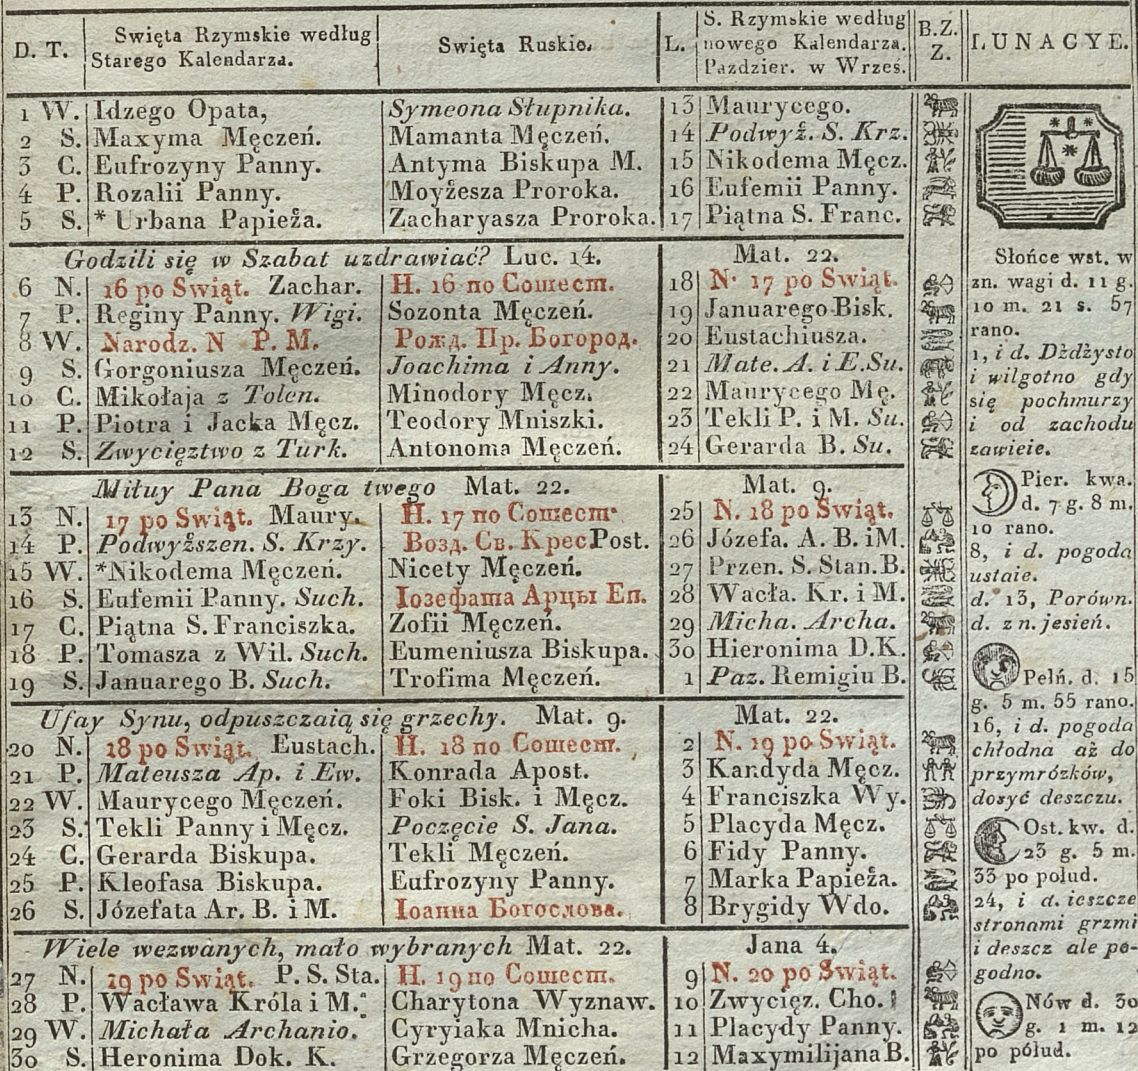 D. T. | Swięta Rzymskie według Starego Kalendarza. | Swięta Ruskie. | L. | S. Rzymskie według nowego Kalendarza. Pazdzier. w Wrześ. | B.Z. Z. | LUNACYE.
1 W. Idzego Opata, | Symeona Słupnika. | 13 Maurycego.
2 S. Maxyma Męczeń. | Mamanta Męczeń. | 14 Podwyż. S. Krz.
3 C. Eufrozyny Panny. | Antyma Biskupa M. | 15 Nikodema Męcz.
4 P. Rozalii Panny. | Moyżesza Proroka. | 16 Eufemii Panny.
5 S. * Urbana Papieża. | Zacharyasza Proroka. | 17 Piątna S. Franc.
Godzili się w Szabat uzdrawiać? Luc. 14. | Mat. 22.
6 N. 16 po Swiąt. Zachar. | Н. 16 по Сошест. | 18 N. 17 po Swiąt.
7 P. Reginy Panny. Wigi. | Sozonta Męczeń. | 19 Januarego Bisk.
8 W. Narodz. N P. M. | Рожд. Пр. Богород. | 20 Eustachiusza.
9 S. Gorgoniusza Męczeń. | Joachima i Anny. | 21 Mate. A. i E. Su.
10 C. Mikołaja z Tolen. | Minodory Męcz. | 22 Maurycego Mę.
11 P. Piotra i Jacka Męcz. | Teodory Mniszki. | 23 Tekli P. i M. Su.
12 S. Zwycięztwo z Turk. | Antonoma Męczeń. | 24 Gerarda B. Su.
Miłuy Pana Boga twego Mat. 22. | Mat. 9.
13 N. 17 po Swiąt. Maury. | Н. 17 по Сошест. | 25 N. 18 po Swiąt.
14 P. Podwyższen. S. Krzy. | Возд. Св. Крес Post. | 26 Józefa. A. B. i M.
15 W. *Nikodema Męczeń. | Nicety Męczeń. | 27 Przen. S. Stan. B.
16 S. Eufemii Panny. Such. | Іозефата Арцы Еп. | 28 Wacła. Kr. i M.
17 C. Piątna S. Franciszka. | Zofii Męczeń. | 29 Micha. Archa.
18 P. Tomasza z Wil. Such. | Eumeniusza Biskupa. | 30 Hieronima D.K.
19 S. Januarego B. Such. | Trofima Męczeń. | 1 Paz. Remigiu B.
Ufay Synu, odpuszczaią się grzechy. Mat. 9. | Mat. 22.
20 N. 18 po Swiąt. Eustach. | Н. 18 по Сошест. | 2 N. 19 po Swiąt.
21 P. Mateusza Ap. i Ew. | Konrada Apost. | 3 Kandyda Męcz.
22 W. Maurycego Męczeń. | Foki Bisk. i Męcz. | 4 Franciszka Wy.
23 S. Tekli Panny i Męcz. | Poczęcie S. Jana. | 5 Placyda Męcz.
24 C. Gerarda Biskupa. | Tekli Męczeń. | 6 Fidy Panny.
25 P. Kleofasa Biskupa. | Eufrozyny Panny. | 7 Marka Papieża.
26 S. Józefata Ar. B. i M. | Іоанна Богослова. | 8 Brygidy Wdo.
Wiele wezwanych, mało wybranych Mat. 22. | Jana 4.
27 N. 19 po Swiąt. P. S. Sta. | Н. 19 по Сошест. | 9 N. 20 po Swiąt.
28 P. Wacława Króla i M. | Charytona Wyznaw. | 10 Zwycięz. Cho.
29 W. Michała Archanio. | Cyryiaka Mnicha. | 11 Placydy Panny.
30 S. Heronima Dok. K. | Grzegorza Męczeń. | 12 Maxymilijana B.
Słońce wst. w
zn. wagi d. 11 g.
10 m. 21 s. 57
rano.
1, i d. Dżdżysto
i wilgotno gdy
się pochmurzy
i od zachodu
zawieie.
Pier. kwa.
d. 7 g. 8 m.
10 rano.
8, i d. pogoda
ustaie.
d. 13, Porówn.
d. z n. jesień.
Pełń. d. 15
g. 5 m. 55 rano.
16, i d. pogoda
chłodna aż do
przymrózków,
dosyć deszczu.
Ost. kw. d.
23 g. 5 m.
33 po połud.
24, i d. ieszcze
stronami grzmi
i deszcz ale po-
godno.
Nów d. 30
g. 1 m. 12
po półud.